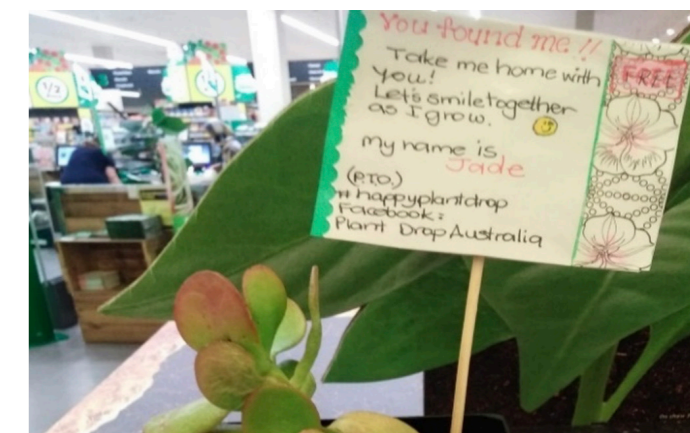 You found me!!
Take me home with
you!
Let's smile together
as I grow.
My name is
Jade
(P.T.O.)
#happyplantdrop
Facebook:
Plant Drop Australia
FREE
1/2